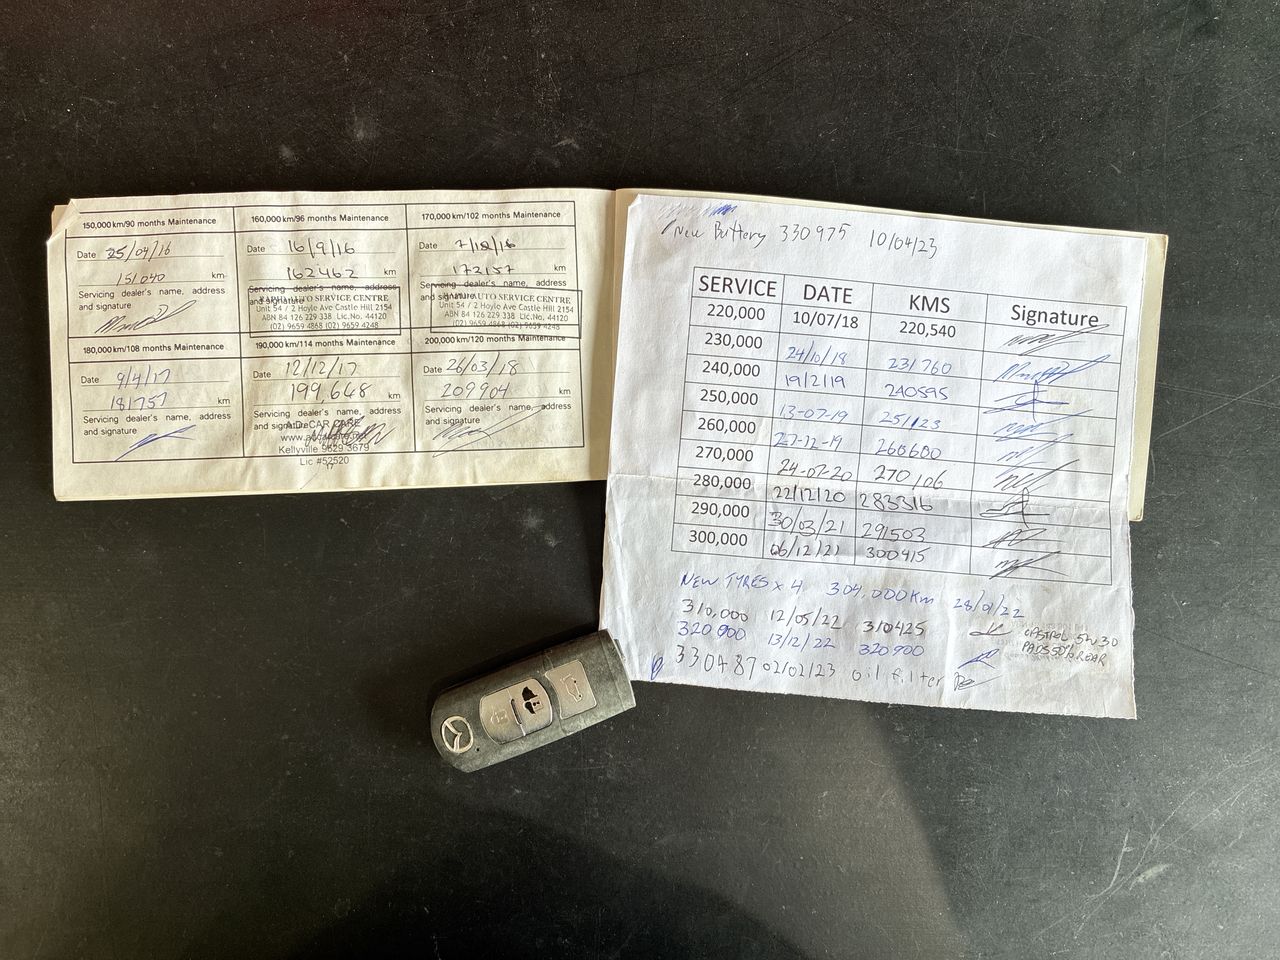 150,000 km/90 months Maintenance
Date 25/04/16
151040 km
Servicing dealer's name, address
and signature
160,000 km/96 months Maintenance
Date 16/9/16
162462 km
Servicing dealer's name, address
and signature
AUTO SERVICE CENTRE
Unit 54 / 2 Hoyle Ave Castle Hill 2154
ABN 84 126 229 338 Lic.No. 44120
(02) 9659 4868 (02) 9659 4248
170,000 km/102 months Maintenance
Date 7/12/16
172157 km
Servicing dealer's name, address
and signature
AUTO SERVICE CENTRE
Unit 54 / 2 Hoyle Ave Castle Hill 2154
ABN 84 126 229 338 Lic.No. 44120
(02) 9659 4868 (02) 9659 4248
180,000 km/108 months Maintenance
Date 9/4/17
181757 km
Servicing dealer's name, address
and signature
190,000 km/114 months Maintenance
Date 12/12/17
199,648 km
Servicing dealer's name, address
and signature
CAR CARE
Kellyville 9629 3679
Lic #52520
200,000 km/120 months Maintenance
Date 26/03/18
209904 km
Servicing dealer's name, address
and signature
New Buttery 330975 10/04/23
SERVICE DATE KMS Signature
220,000 10/07/18 220,540
230,000 24/10/18 231760
240,000 19/2/19 240595
250,000 13-07-19 251123
260,000 27-12-19 260600
270,000 24-07-20 270106
280,000 22/12/20 283316
290,000 30/03/21 291503
300,000 06/12/21 300415
NEW TYRES x 4 304,000Km 28/01/22
310,000 12/05/22 310425
CASTROL 5W30
320 000 13/12/22 320900
PADS 50% REAR
330487 02/02/23 oil filter